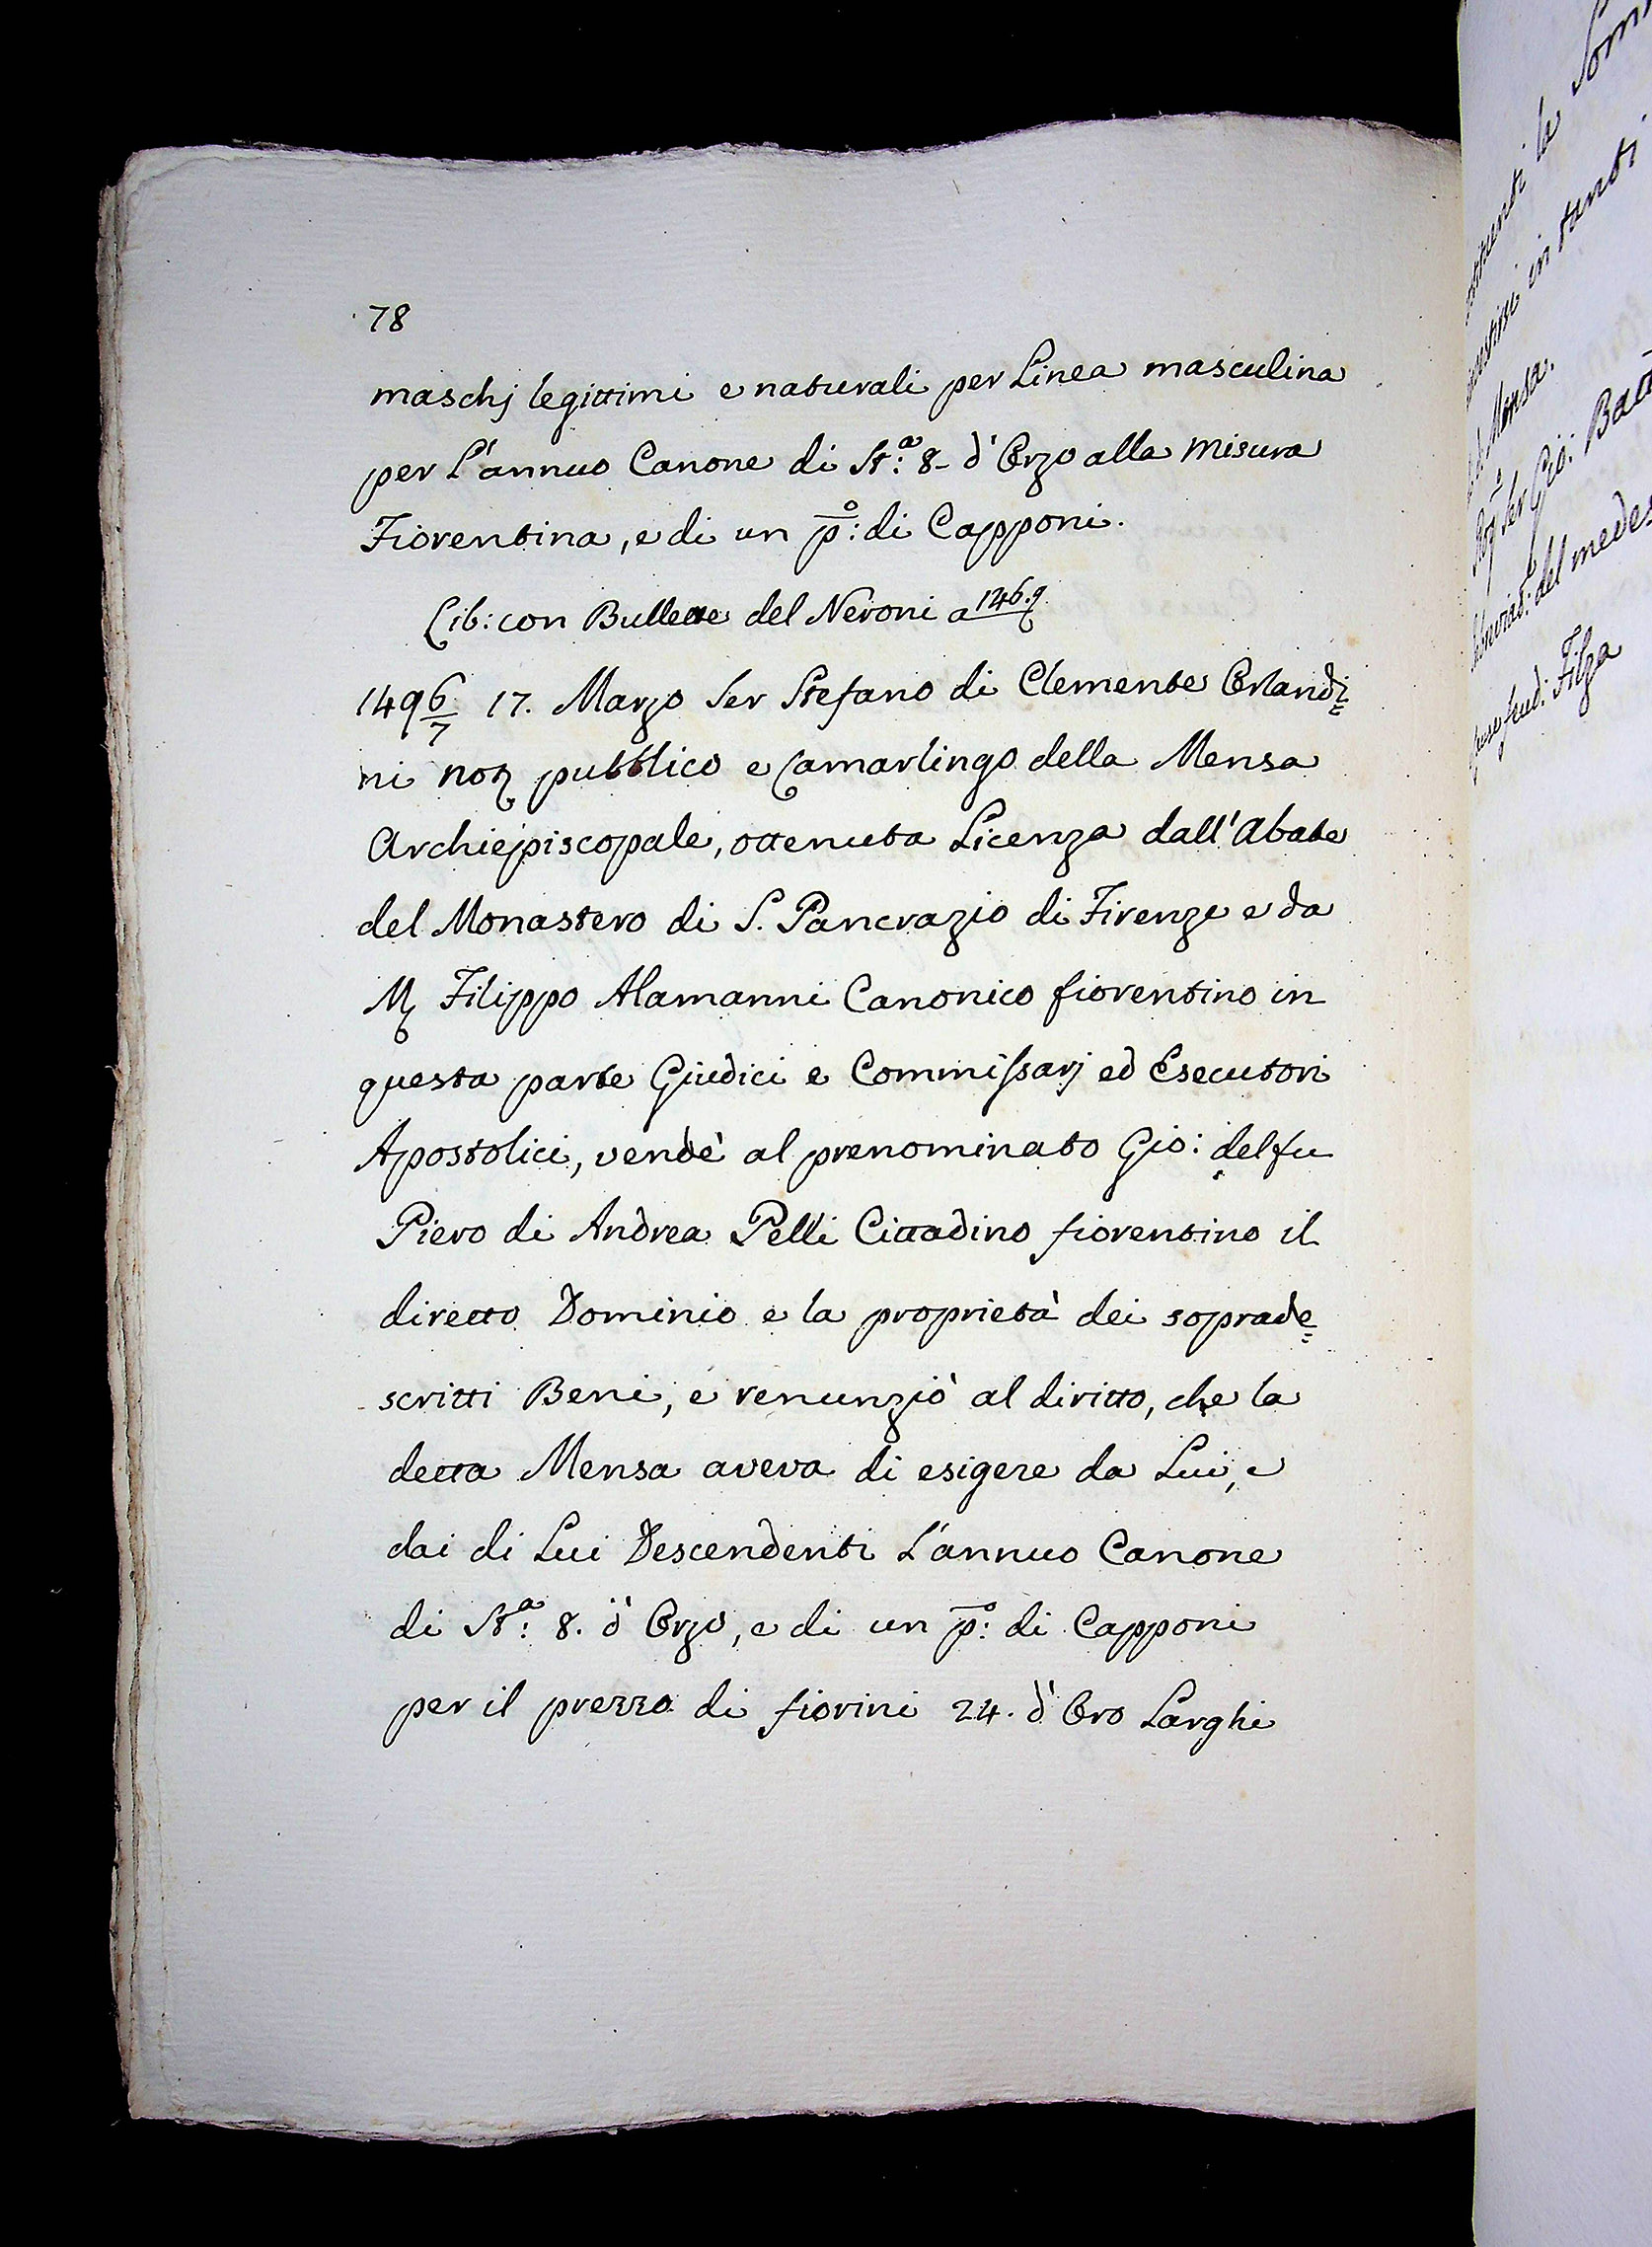 78
maschj legittimi e naturali per Linea masculina
per L'annuo Canone di St:ª 8- d'Orzo alla misura
Fiorentina, e di un p̄:º di Capponi.
Lib: con Bullette del Neroni a 146.
1496/7 17. Marzo Ser Stefano di Clemente Orlandi=
ni Noz pubblico e Camarlingo della Mensa
Archiepiscopale, ottenuta Licenza dall'Abate
del Monastero di S. Pancrazio di Firenze e da
M Filippo Alamanni Canonico fiorentino in
questa parte Giudici e Commissarj ed Esecutori
Apostolici, vendè al prenominato Gio: del fu
Piero di Andrea Pelli Cittadino fiorentino il
diretto Dominio e la proprietà dei soprade=
scritti Beni, e renunziò al diritto, che la
detta Mensa aveva di esigere da Lui, e
dai di Lui Descendenti L'annuo Canone
di St:ª 8. d'Orzo, e di un p̄:º di Capponi
per il prezzo di fiorini 24. d'Oro Larghi
la Som
in tanti
Mensa.
Ser Gio: Batt
del medes
Filza